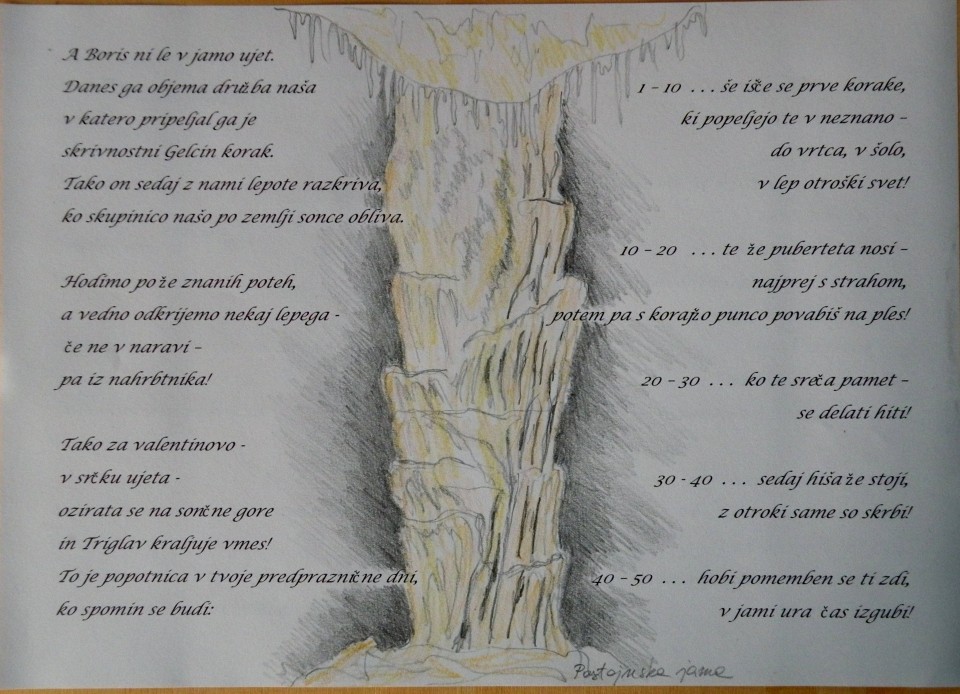 A Boris ni le v jamo ujet.
Danes ga objema družba naša
v katero pripeljal ga je
skrivnostni Gelcin korak.
Tako on sedaj z nami lepote razkriva,
ko skupinico našo po zemlji sonce obliva.
Hodimo po že znanih poteh,
a vedno odkrijemo nekaj lepega -
če ne v naravi –
pa iz nahrbtnika!
Tako za valentinovo -
v srčku ujeta -
ozirata se na sončne gore
in Triglav kraljuje vmes!
To je popotnica v tvoje predpraznične dni,
ko spomin se budi:
1 – 10 ... še išče se prve korake,
ki popeljejo te v neznano –
do vrtca, v šolo,
v lep otroški svet!
10 – 20 ... te že puberteta nosi –
najprej s strahom,
potem pa s koražo punco povabiš na ples!
20 – 30 ... ko te sreča pamet –
se delati hiti!
30 - 40 ... sedaj hiša že stoji,
z otroki same so skrbi!
40 – 50 ... hobi pomemben se ti zdi,
v jami ura čas izgubi!
Postojnska jama